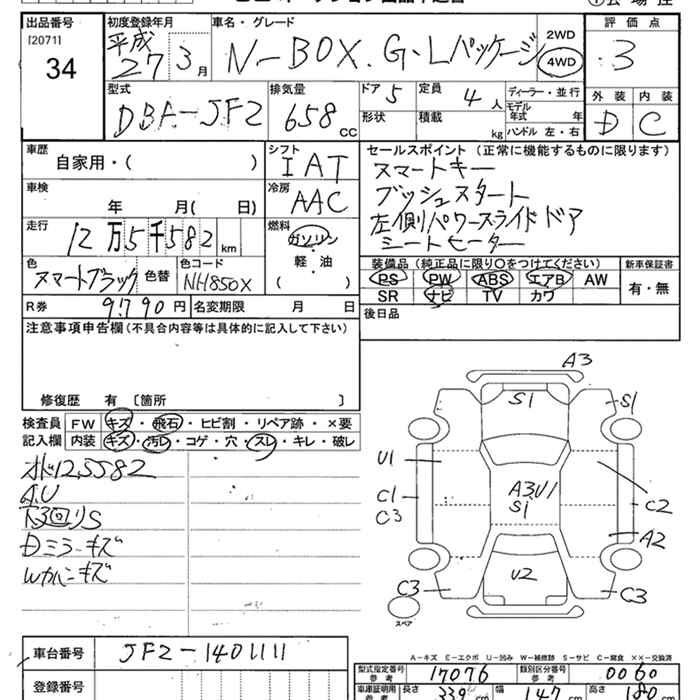 出品番号 初度登録年月 車名・グレード 評価点
[2071] 平成 N-BOX. G・Lパッケージ 2WD
34 27 3月 4WD 3
型式 排気量 ドア 5 定員 4人 ディーラー・並行 外装 内装
DBA-JF2 658 CC 形状 積載 kg モデル年式 年 D C
ハンドル 左・右
車歴 シフト セールスポイント (正常に機能するものに限ります)
自家用・( ) IAT スマートキー
車検 冷房 プッシュスタート
年 月( 日) AAC 左側パワースライドドア
走行 燃料 シートヒーター
12万5千582km ガソリン
軽・油
( )
色 色替 色コード 装備品 (純正品に限り○をつけてください) 新車保証書
スマートブラック NH850X PS PW ABS エアB AW 有・無
R券 9790円 名変期限 月 日 SR ナビ TV カワ
注意事項申告欄(不具合内容等は具体的に記入して下さい) 後日品
修復歴 有 [箇所 ]
検査員 FW キズ・飛石・ヒビ割・リペア跡・×要
記入欄 内装 キズ・汚レ・コゲ・穴・スレ・キレ・破レ
オド125582
A.U
下回りS
Dミラーキズ
Wカバーキズ
A3
S1 S1
U1
C1 A3U1 C2
C3 S1
A2
U2
C3 C3
スペア
A-キズ E-エクボ U-凹み W-補修跡 S-サビ C-腐食 ××-交換済
車台番号 JF2-1401111
型式指定番号 参考 17076 類別区分番号 参考 0060
登録番号
車庫証明用 参考 長さ 339cm 幅 147cm 高さ 180cm